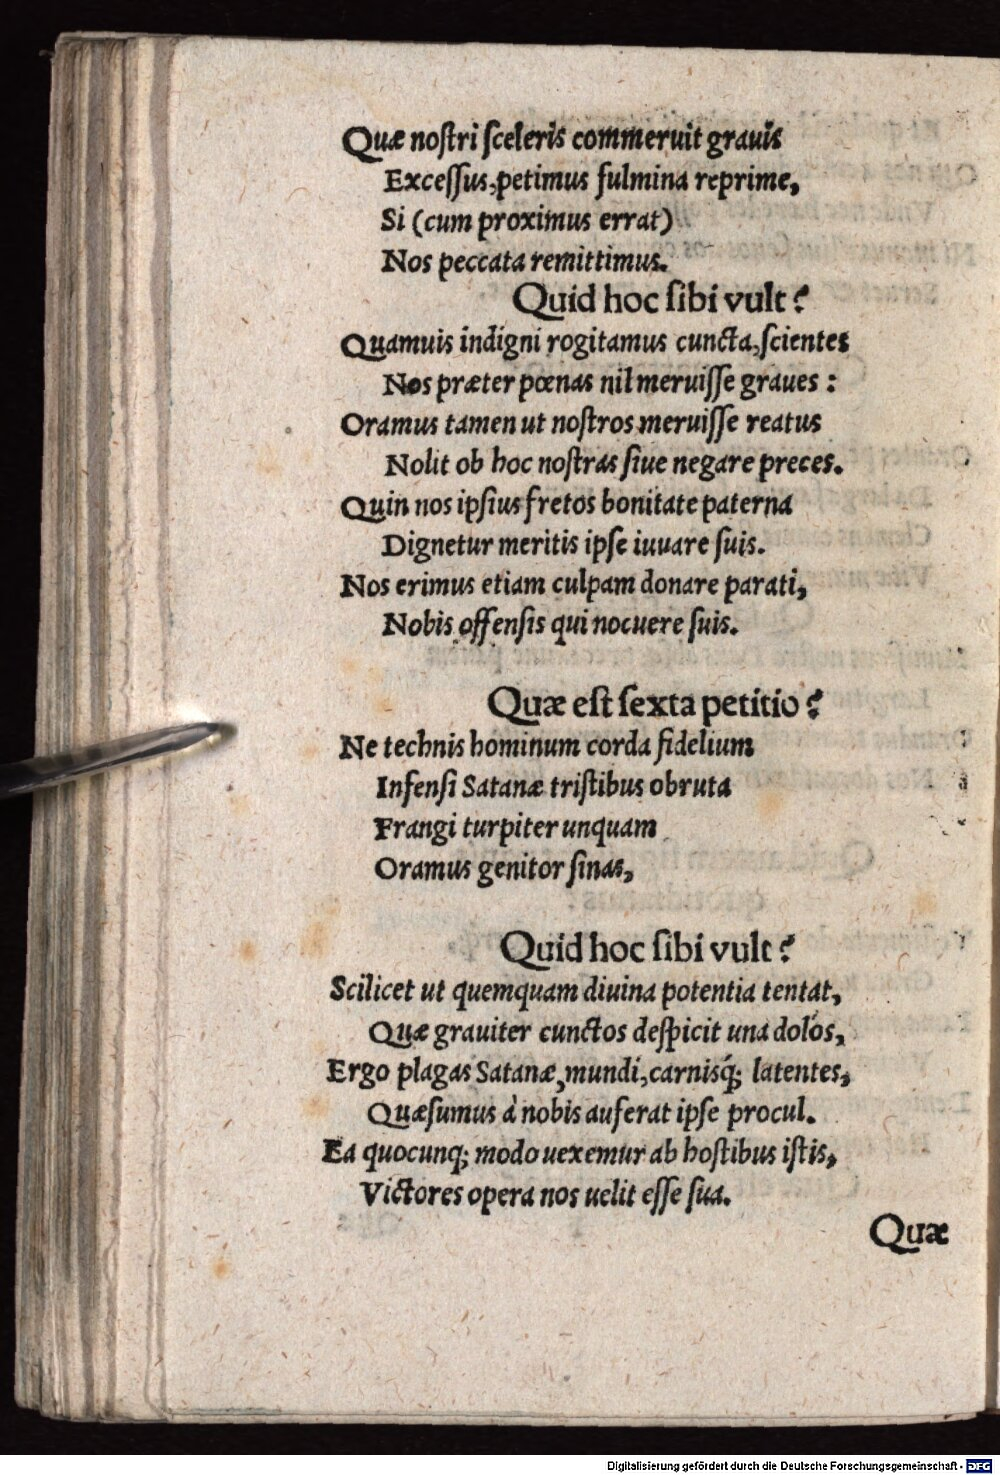 Quæ noſtri ſceleris commeruit grauis
Exceſſus, petimus fulmina reprime,
Si (cum proximus errat)
Nos peccata remittimus.
Quid hoc ſibi vult?
Quamuis indigni rogitamus cuncta, ſcientes
Nos præter pœnas nil meruiſſe graues :
Oramus tamen ut noſtros meruiſſe reatus
Nolit ob hoc noſtras ſiue negare preces.
Quin nos ipſius fretos bonitate paterna
Dignetur meritis ipſe iuuare ſuis.
Nos erimus etiam culpam donare parati,
Nobis offenſis qui nocuere ſuis.
Quæ eſt ſexta petitio?
Ne technis hominum corda fidelium
Infenſi Satanæ triſtibus obruta
Frangi turpiter unquam
Oramus genitor ſinas,
Quid hoc ſibi vult?
Scilicet ut quemquam diuina potentia tentat,
Quæ grauiter cunctos deſpicit una dolos,
Ergo plagas Satanæ, mundi, carnisq́; latentes,
Quæſumus à nobis auferat ipſe procul.
Ea quocunq; modo uexemur ab hoſtibus iſtis,
Victores opera nos uelit eſſe ſua.
Quæ
Digitalisierung gefördert durch die Deutsche Forschungsgemeinschaft - DFG